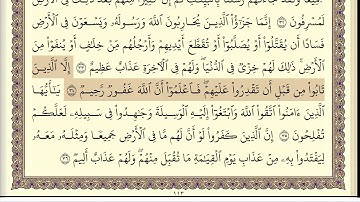 لَمُسْرِفُونَ ۝٣٢ إِنَّمَا جَزَٰٓؤُا۟ ٱلَّذِينَ يُحَارِبُونَ ٱللَّهَ وَرَسُولَهُۥ وَيَسْعَوْنَ فِى ٱلْأَرْضِ
فَسَادًا أَن يُقَتَّلُوٓا۟ أَوْ يُصَلَّبُوٓا۟ أَوْ تُقَطَّعَ أَيْدِيهِمْ وَأَرْجُلُهُم مِّنْ خِلَٰفٍ أَوْ يُنفَوْا۟ مِنَ
ٱلْأَرْضِ ۚ ذَٰلِكَ لَهُمْ خِزْىٌ فِى ٱلدُّنْيَا ۖ وَلَهُمْ فِى ٱلْءَاخِرَةِ عَذَابٌ عَظِيمٌ ۝٣٣ إِلَّا ٱلَّذِينَ
تَابُوا۟ مِن قَبْلِ أَن تَقْدِرُوا۟ عَلَيْهِمْ ۖ فَٱعْلَمُوٓا۟ أَنَّ ٱللَّهَ غَفُورٌ رَّحِيمٌ ۝٣٤ يَٰٓأَيُّهَا
ٱلَّذِينَ ءَامَنُوا۟ ٱتَّقُوا۟ ٱللَّهَ وَٱبْتَغُوٓا۟ إِلَيْهِ ٱلْوَسِيلَةَ وَجَٰهِدُوا۟ فِى سَبِيلِهِۦ لَعَلَّكُمْ
تُفْلِحُونَ ۝٣٥ إِنَّ ٱلَّذِينَ كَفَرُوا۟ لَوْ أَنَّ لَهُم مَّا فِى ٱلْأَرْضِ جَمِيعًا وَمِثْلَهُۥ مَعَهُۥ
لِيَفْتَدُوا۟ بِهِۦ مِنْ عَذَابِ يَوْمِ ٱلْقِيَٰمَةِ مَا تُقُبِّلَ مِنْهُمْ ۖ وَلَهُمْ عَذَابٌ أَلِيمٌ ۝٣٦
١١٣